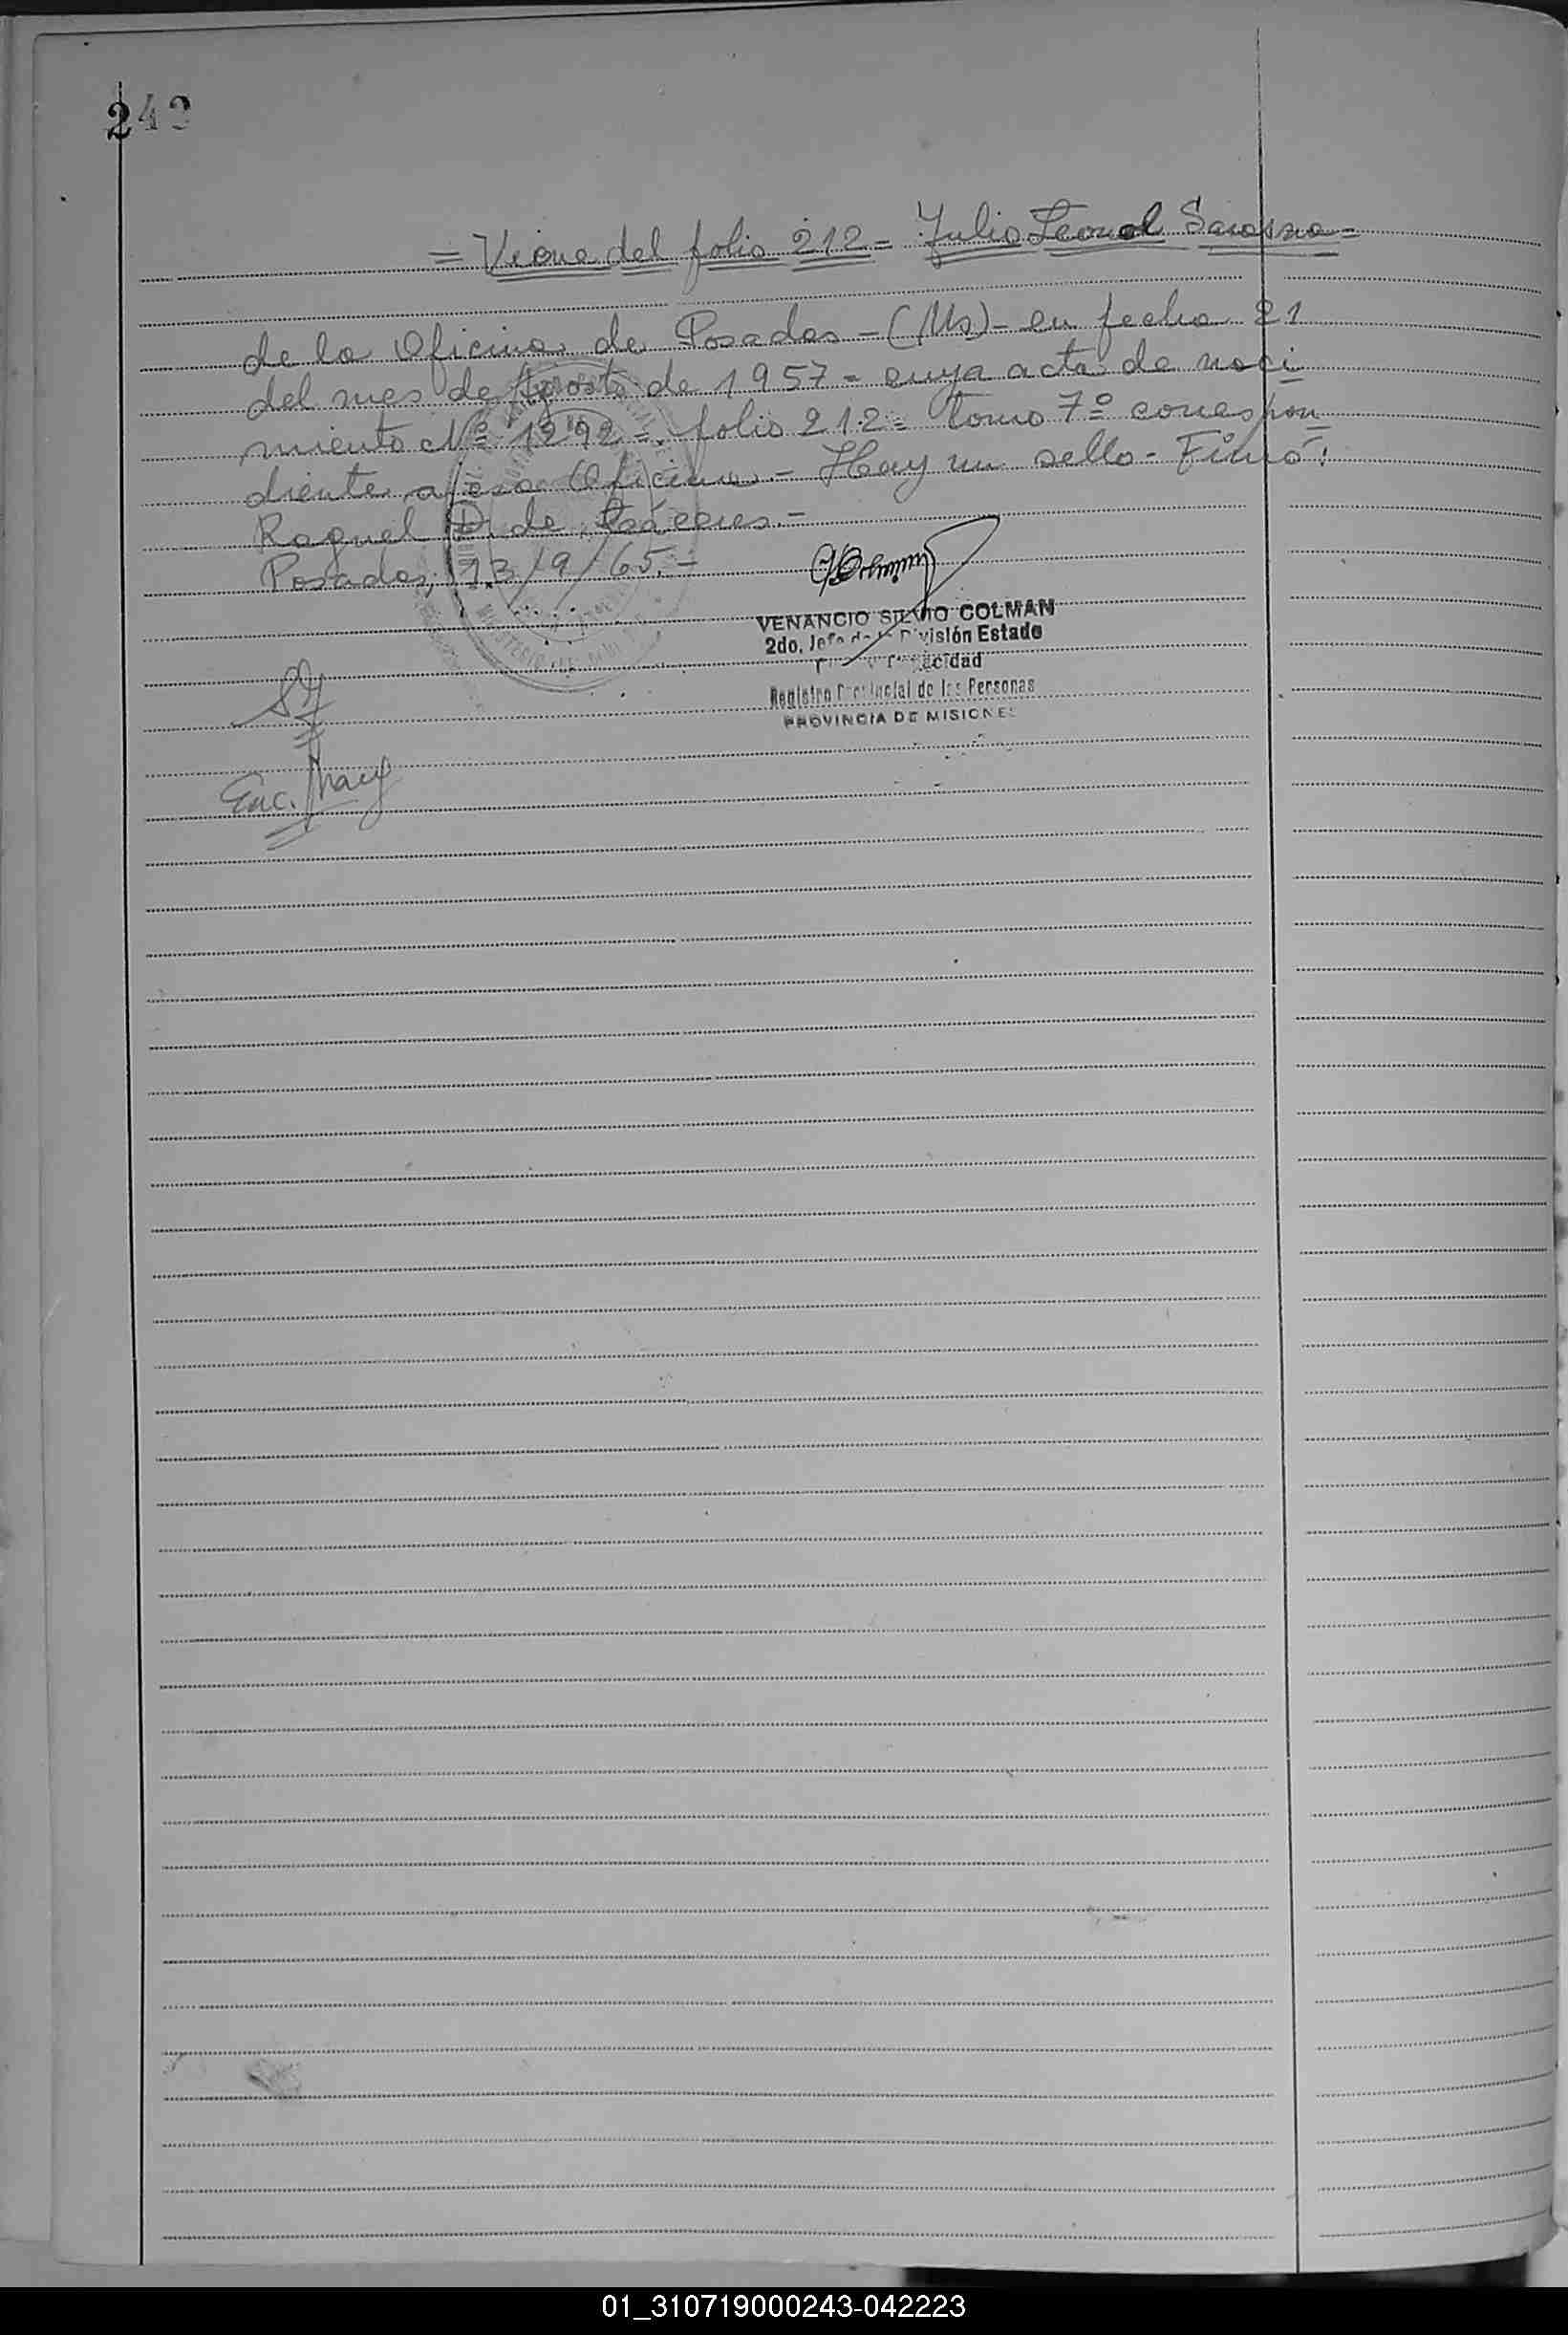 242
= Viene del folio 212 = Julio Leonel Sarasza =
de la Oficina de Posadas - (Ms) - en fecha 21
del mes de Agosto de 1957 = cuya acta de naci
miento Nº 1292 = folio 212 = tomo 7º correspon
diente a esa Oficina. - Hay un sello - Firmó:
Raquel D. de Cáceres. -
Posadas, 13/9/65. -
VENANCIO SILVIO COLMAN
2do. Jefe de la División Estado
y Capacidad
Registro Provincial de las Personas
PROVINCIA DE MISIONES
Enc.
01_310719000243-042223